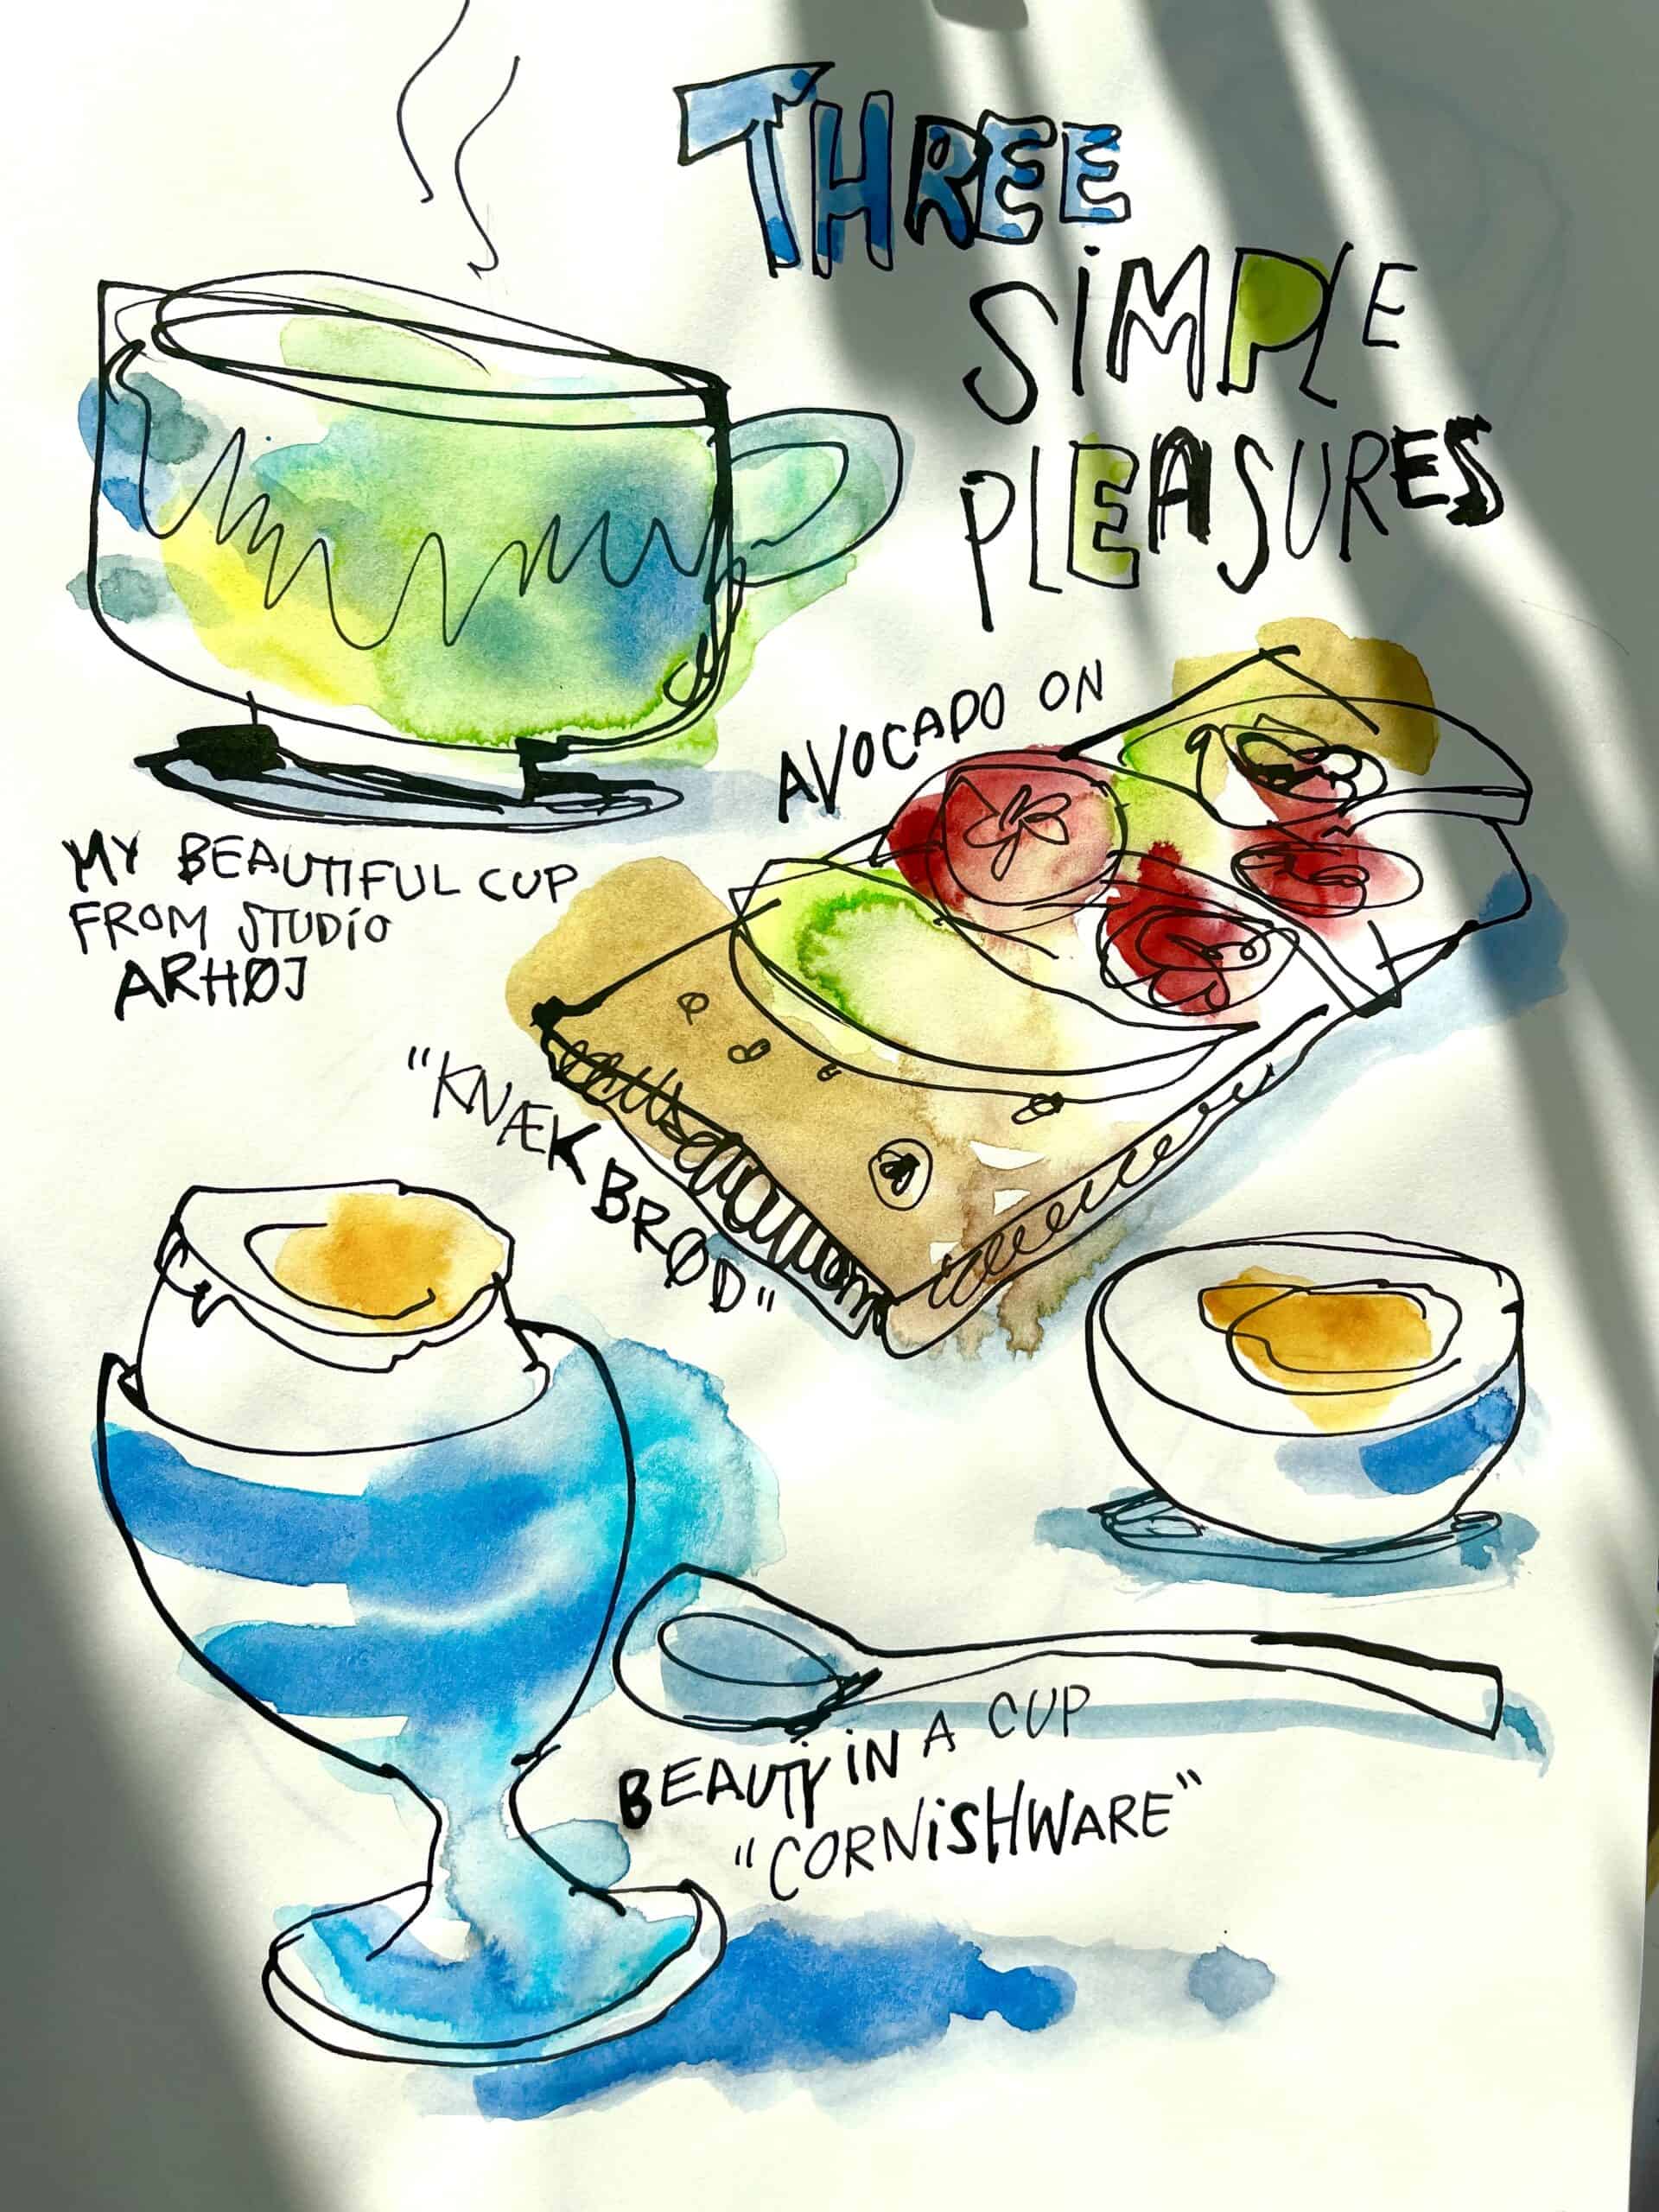 THREE
SiMPLE
PLEASURES
MY BEAUTIFUL CUP
FROM STUDiO
ARHØJ
AVOCADO ON
"KNÆK BRØD"
BEAUTY iN A CUP
"CORNiSHWARE"